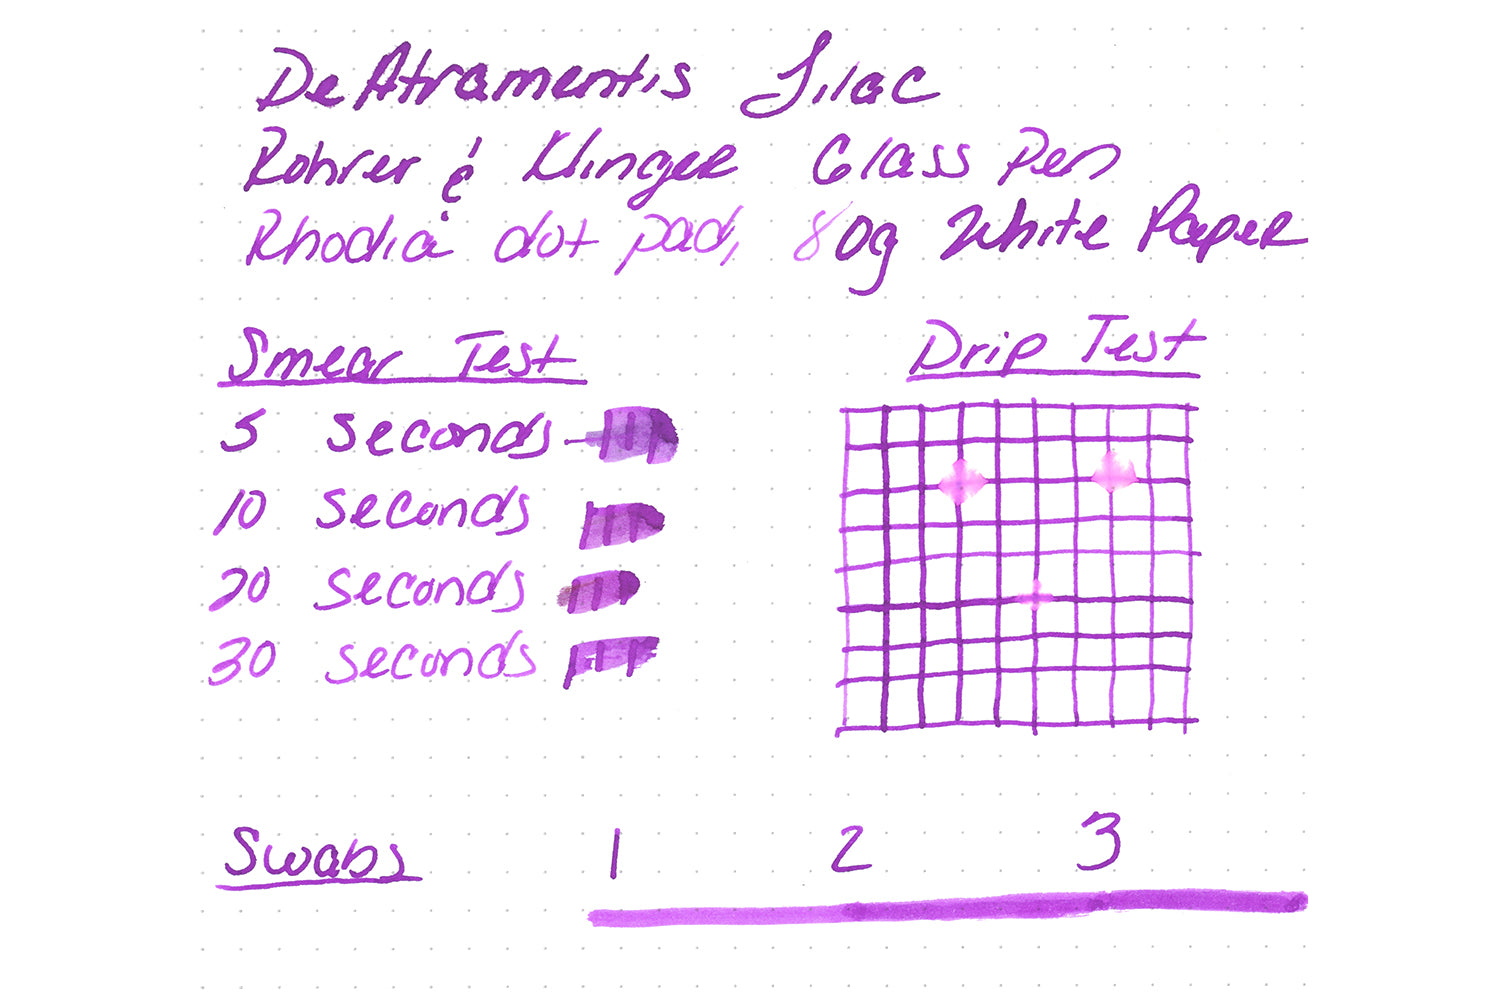 De Atramentis Lilac
Rohrer & Klinger Glass Pen
Rhodia dot pad, 80g White Paper
Smear Test
Drip Test
5 seconds
10 seconds
20 seconds
30 seconds
Swabs 1 2 3